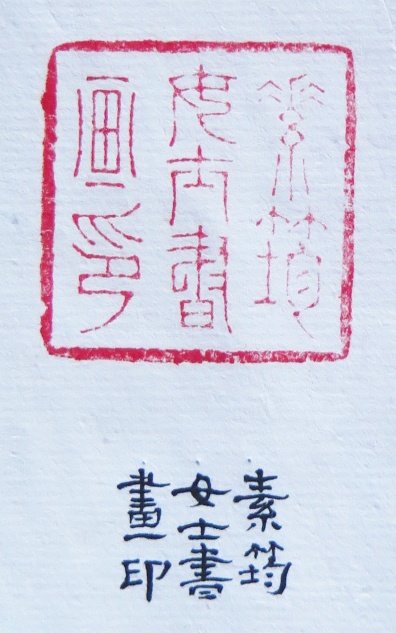 素筠
女士書
畫印
素筠
女士書
畫印